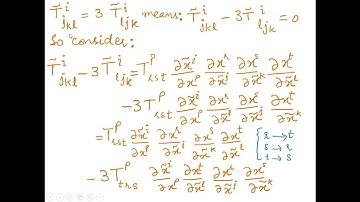 T̃^i_{jkl} = 3 T̃^i_{ljk} means: T̃^i_{jkl} - 3 T̃^i_{ljk} = 0
So consider:
T̃^i_{jkl} - 3 T̃^i_{ljk} = T^p_{rst} ∂x̃^i/∂x^p ∂x^r/∂x̃^j ∂x^s/∂x̃^k ∂x^t/∂x̃^l
- 3 T^p_{rst} ∂x̃^i/∂x^p ∂x^r/∂x̃^l ∂x^s/∂x̃^j ∂x^t/∂x̃^k
= T^p_{rst} ∂x̃^i/∂x^p ∂x^r/∂x̃^j ∂x^s/∂x̃^k ∂x^t/∂x̃^l [ r → t
s → r
t → s
- 3 T^p_{trs} ∂x̃^i/∂x^p ∂x^t/∂x̃^l ∂x^r/∂x̃^j ∂x^s/∂x̃^k